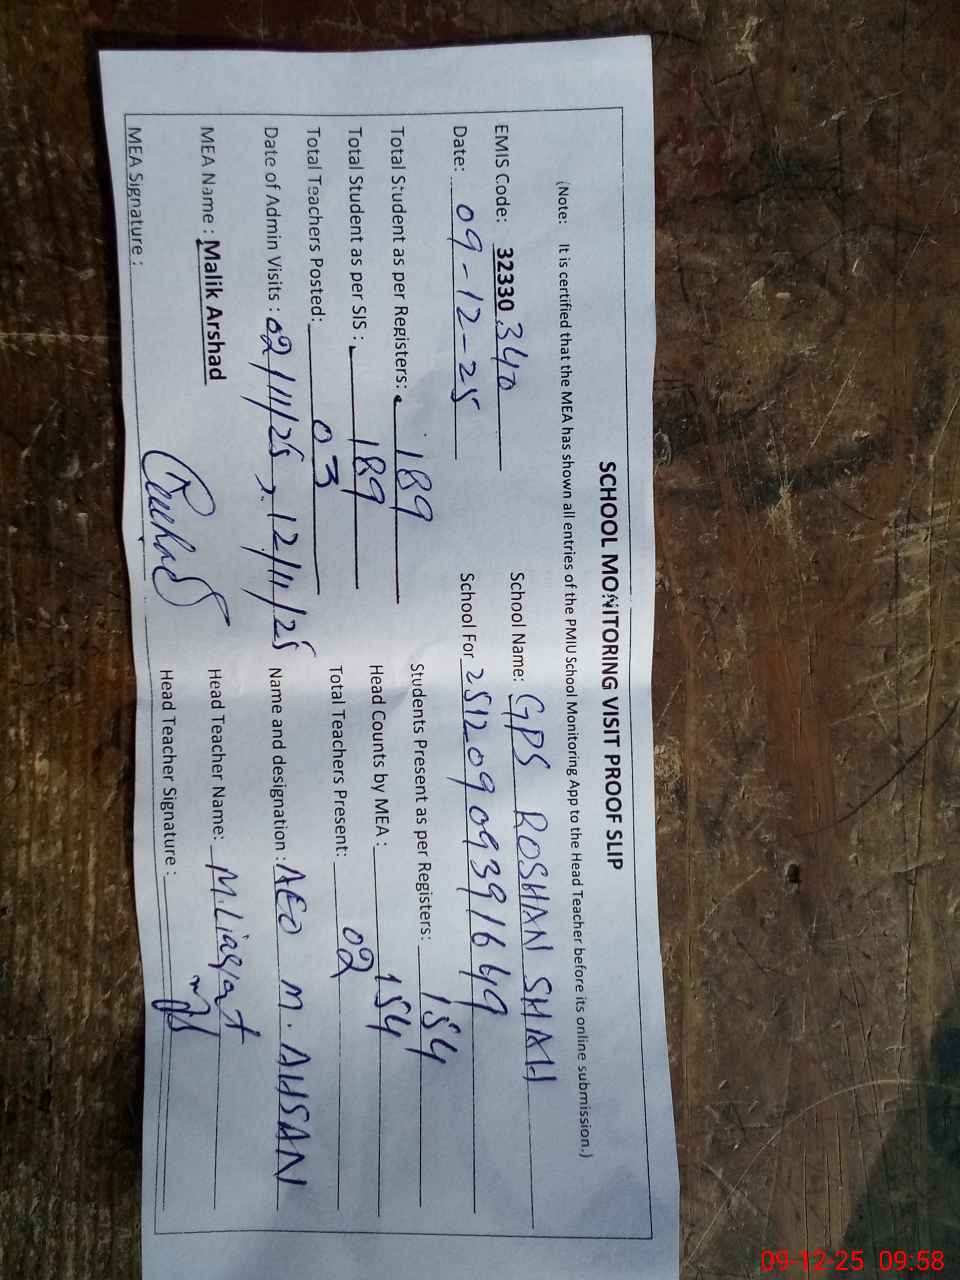 SCHOOL MONITORING VISIT PROOF SLIP
(Note: It is certified that the MEA has shown all entries of the PMIU School Monitoring App to the Head Teacher before its online submission.)
EMIS Code: 32330340 School Name: GPS ROSHAN SHAH
Date: 09-12-25 School For 25120909391649
Total Student as per Registers: 189 Students Present as per Registers: 154
Total Student as per SIS: 189 Head Counts by MEA: 154
Total Teachers Posted: 03 Total Teachers Present: 02
Date of Admin Visits: 02/11/25, 12/11/25 Name and designation: AEO M. AHSAN
MEA Name: Malik Arshad Head Teacher Name: M. Liaqat
MEA Signature: Head Teacher Signature:
09-12-25 09:58